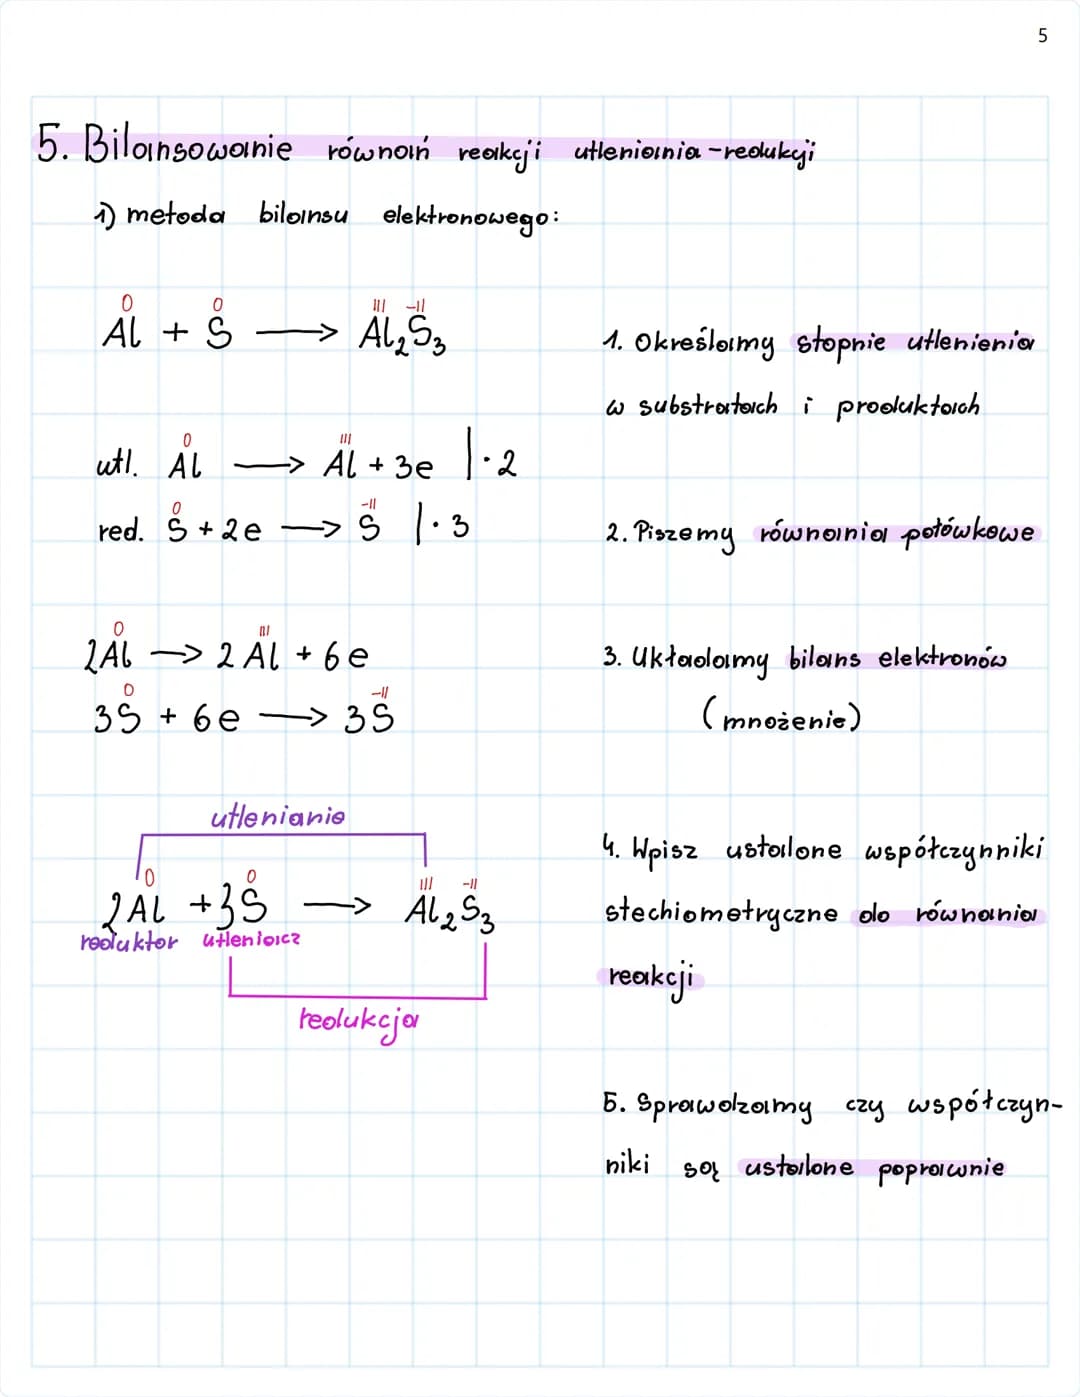 5
5. Bilansowanie równań reakcji utleniania-redukcji
1) metoda bilansu elektronowego:
0 0 III -II
Al + S ⟶ Al₂S₃
1. Określamy stopnie utlenienia
w substratach i produktach
0 III
utl. Al ⟶ Al + 3e |·2
0 -II
red. S + 2e ⟶ S |·3
2. Piszemy równania połówkowe
0 III
2Al ⟶ 2Al + 6e
0 -II
3S + 6e ⟶ 3S
3. Układamy bilans elektronów
(mnożenie)
utlenianie
0 0 III -II
2Al + 3S ⟶ Al₂S₃
reduktor utleniacz
redukcja
4. Wpisz ustalone współczynniki
stechiometryczne do równania
reakcji
5. Sprawdzamy czy współczyn-
niki są ustalone poprawnie